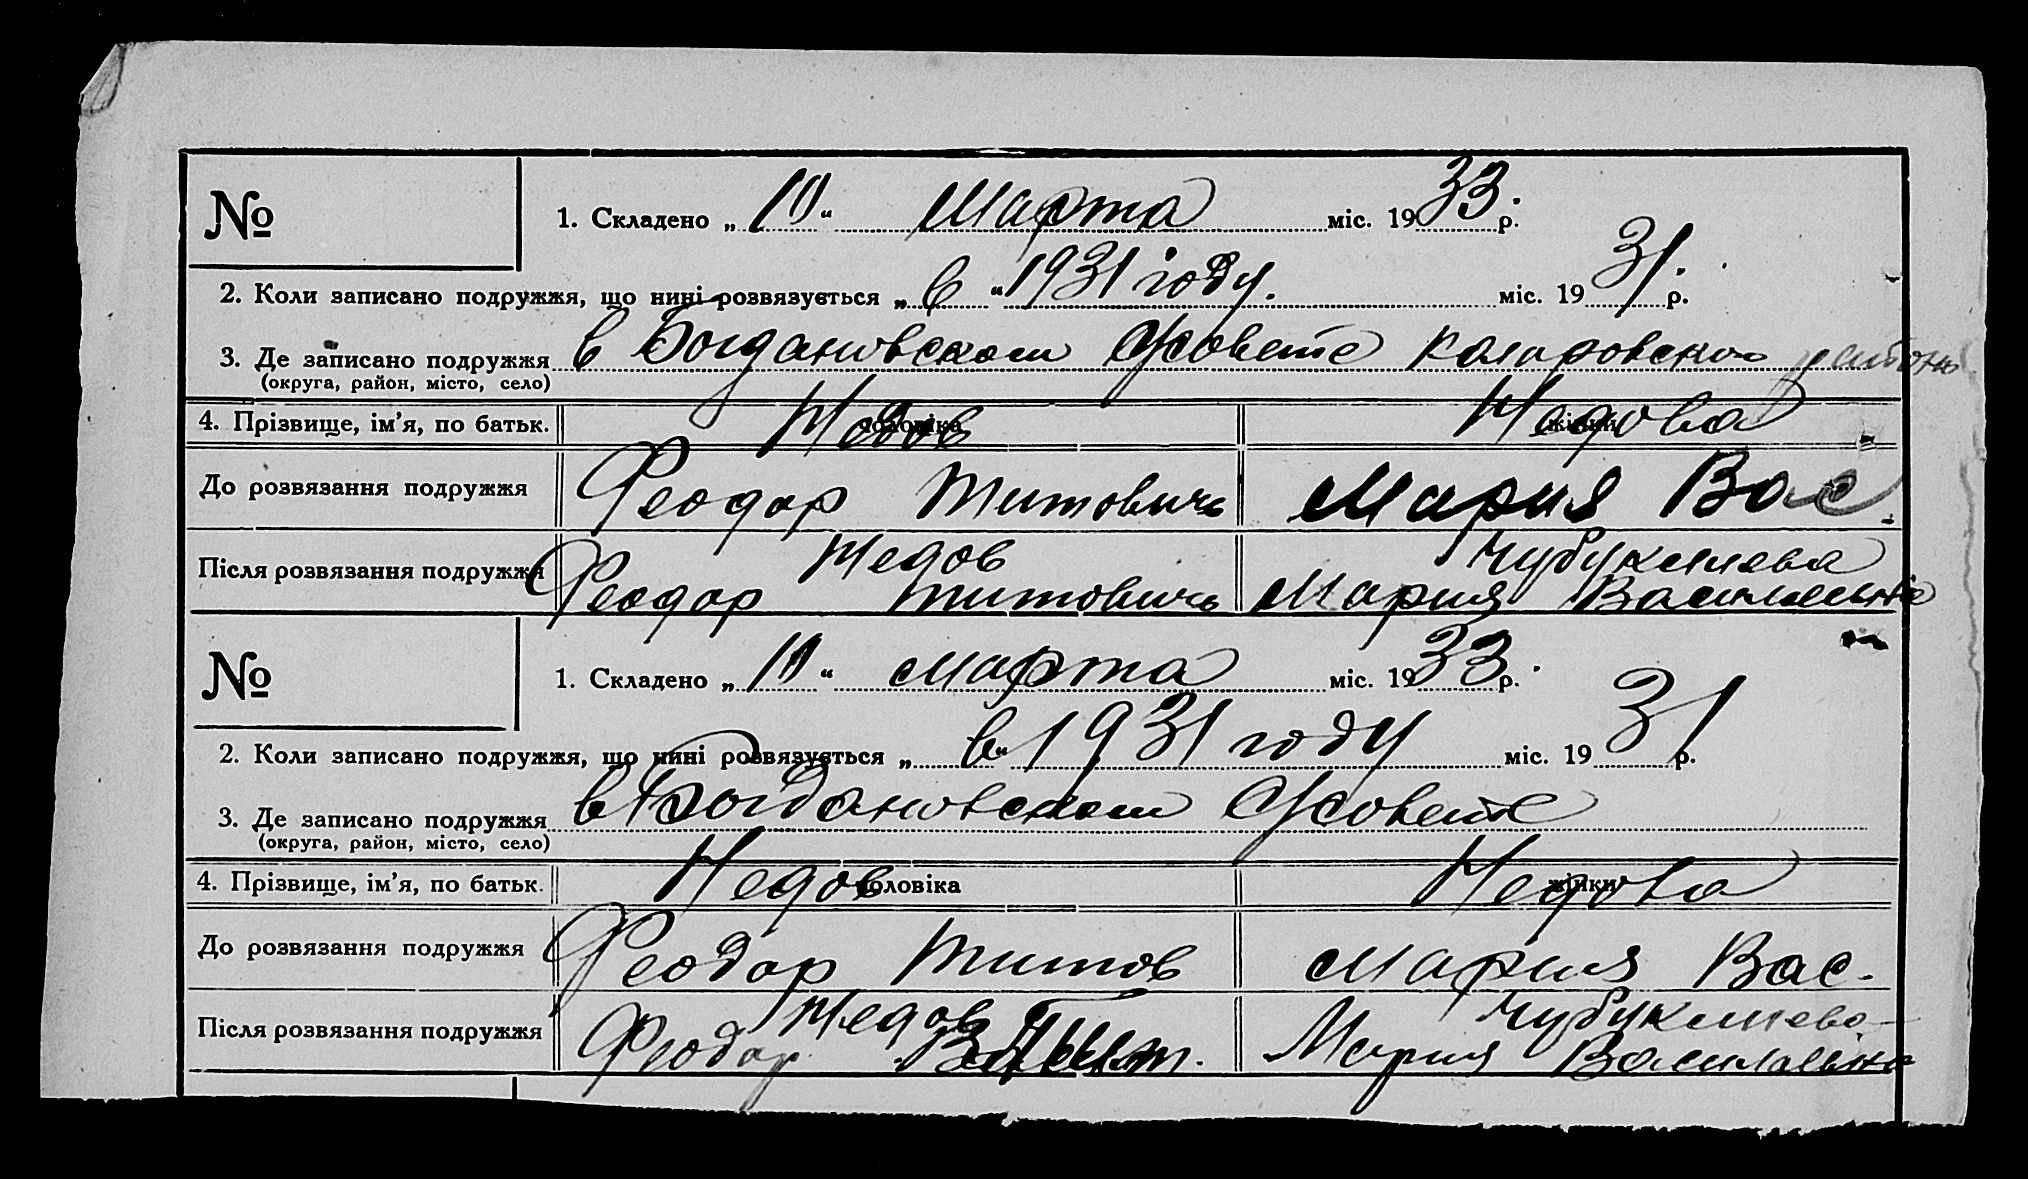 №
1. Складено „ 10 “ Марта міс. 1933 р.
2. Коли записано подружжя, що нині розвязується „ в “ 1931 году. міс. 1931. р.
3. Де записано подружжя в Богдановском с/совете Коларовского района
(округа, район, місто, село)
4. Прізвище, ім’я, по батьк. чоловіка Недов жінки Недова
До розвязання подружжя Феодор Титович Мария Вас.
Після розвязання подружжя Недов Феодор Титович Чубуклиева Мария Васильевна
№
1. Складено „ 10 “ марта міс. 1933 р.
2. Коли записано подружжя, що нині розвязується „ в “ 1931 году міс. 1931 р.
3. Де записано подружжя в Богдановском с/совете
(округа, район, місто, село)
4. Прізвище, ім’я, по батьк. чоловіка Недов жінки Недова
До розвязання подружжя Феодор Титов Мария Вас.
Після розвязання подружжя Недов Феодор Чубуклиева Мария Васильевна